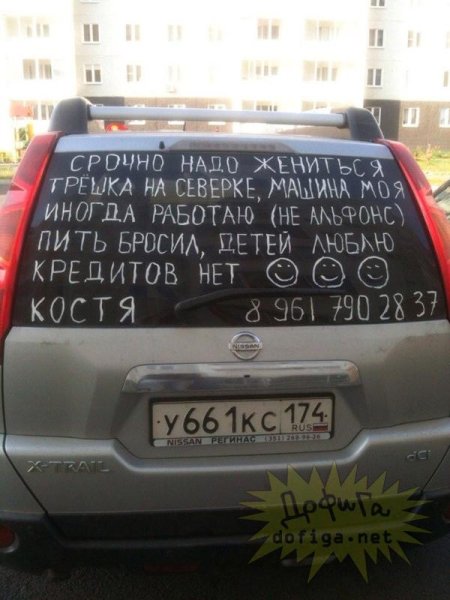 СРОЧНО НАДО ЖЕНИТЬСЯ
ТРЁШКА НА СЕВЕРКЕ, МАШИНА МОЯ
ИНОГДА РАБОТАЮ (НЕ АЛЬФОНС)
ПИТЬ БРОСИЛ, ДЕТЕЙ ЛЮБЛЮ
КРЕДИТОВ НЕТ
КОСТЯ 8 961 790 28 37
NISSAN
У661КС 174 RUS
NISSAN РЕГИНАС
X-TRAIL dCi
ДоФиГа
dofiga.net